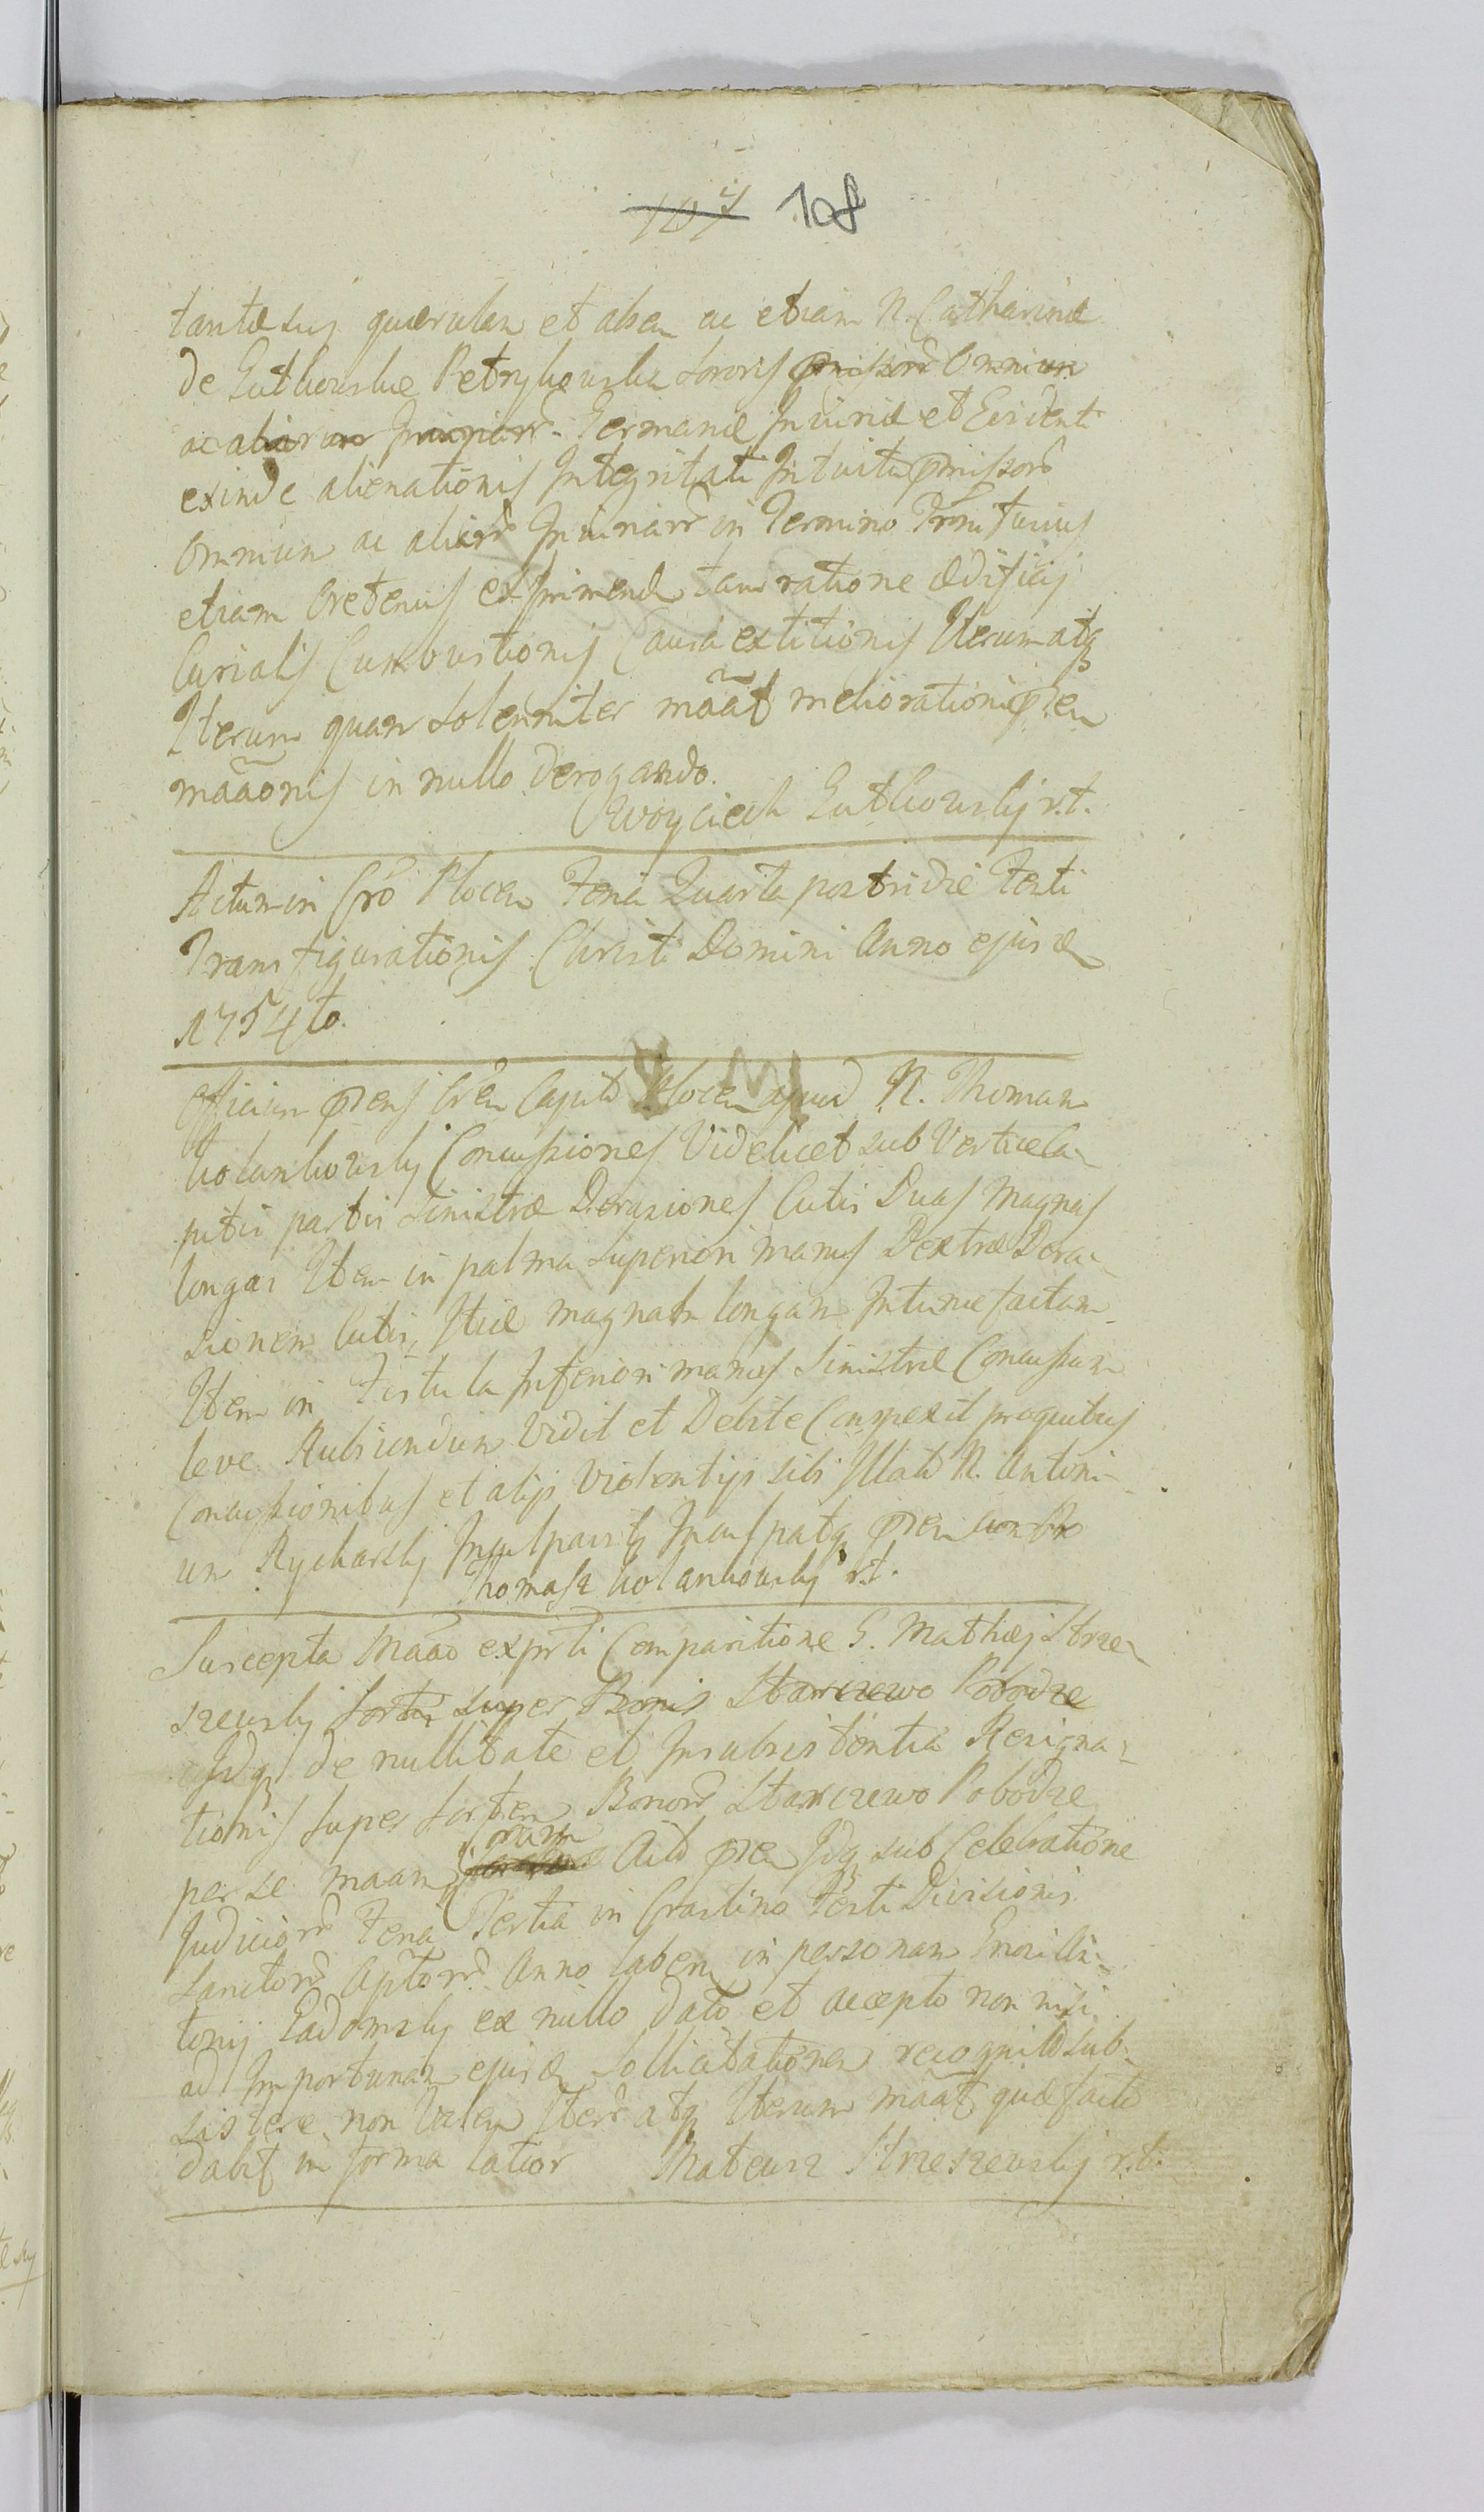 107 108
tantæ suæ quærulan et absen ac etiam N. Catharinæ
de Gutkowskie Petrykowska Sororis præmissorũ Omnium
ac aliarum Injuriarũ Germanæ Injuriæ et Evident
exinde alienationis Integritati Intuitu præmissorũ
Omnium ac aliarũ Injuriarũ in Termino Præmis fusius
etiam Oretenus exprimend tam ratione ædificij
Curialis Combustionis Causa extitionis Iterum atq
Iterum quam solenniter mãat melioratione præn
mãaonis in nullo derogando.
Woyciech Gutkowsky r.t.
Actum in Cro Plocen Feria Quarta postridie Festi
Transfigurationis Christi Domini Anno ejusd
1754to.
Officium præns Cren Capit Plocen apud N. Thomam
Kolankowsky Concussiones Videlicet sub Vertice Ca-
pitis partis Sinistræ Derasiones Cutis Duas Magnas
longas Item in palma superiori manus Dextræ Dera-
sionem Cutis, magnam longam Intumefactam
Item in Fistula Inferiori manus Sinistræ Concussum
leve Rubicundum Vidit et Debite Conspexit pro quibus
Concussionibus et alijs Violentijs sibi Illatis N. Antoni-
um Rycharsky Inculpavit Inculpatq præn
Thomasz Kolankowsky r.t.
Suscepta Mãao ex prti Comparitione G. Mathæj Strze-
szewsky Sortis super Bonis Starczewo Pobodze
Idq de nullitate et Insubsistentia Resigna-
tionis super Sortem Bonorũ Starczewo Pobodze
per se maam Coram Actis præn Idq sub Celebratione
Judiciorũ Feria Tertia in Crastino Festi Divisionis
Sanctorũ Aptorũ Anno laben in personam
Ladomsky ex nullo dato et accepto non nisi
ad Importunam ejusd sollicitationem recognit sub-
sistere non Valen Iterũ atq Iterum mãat quæ facti
dabit in forma latior Mateusz Strzeszewsky r.t.